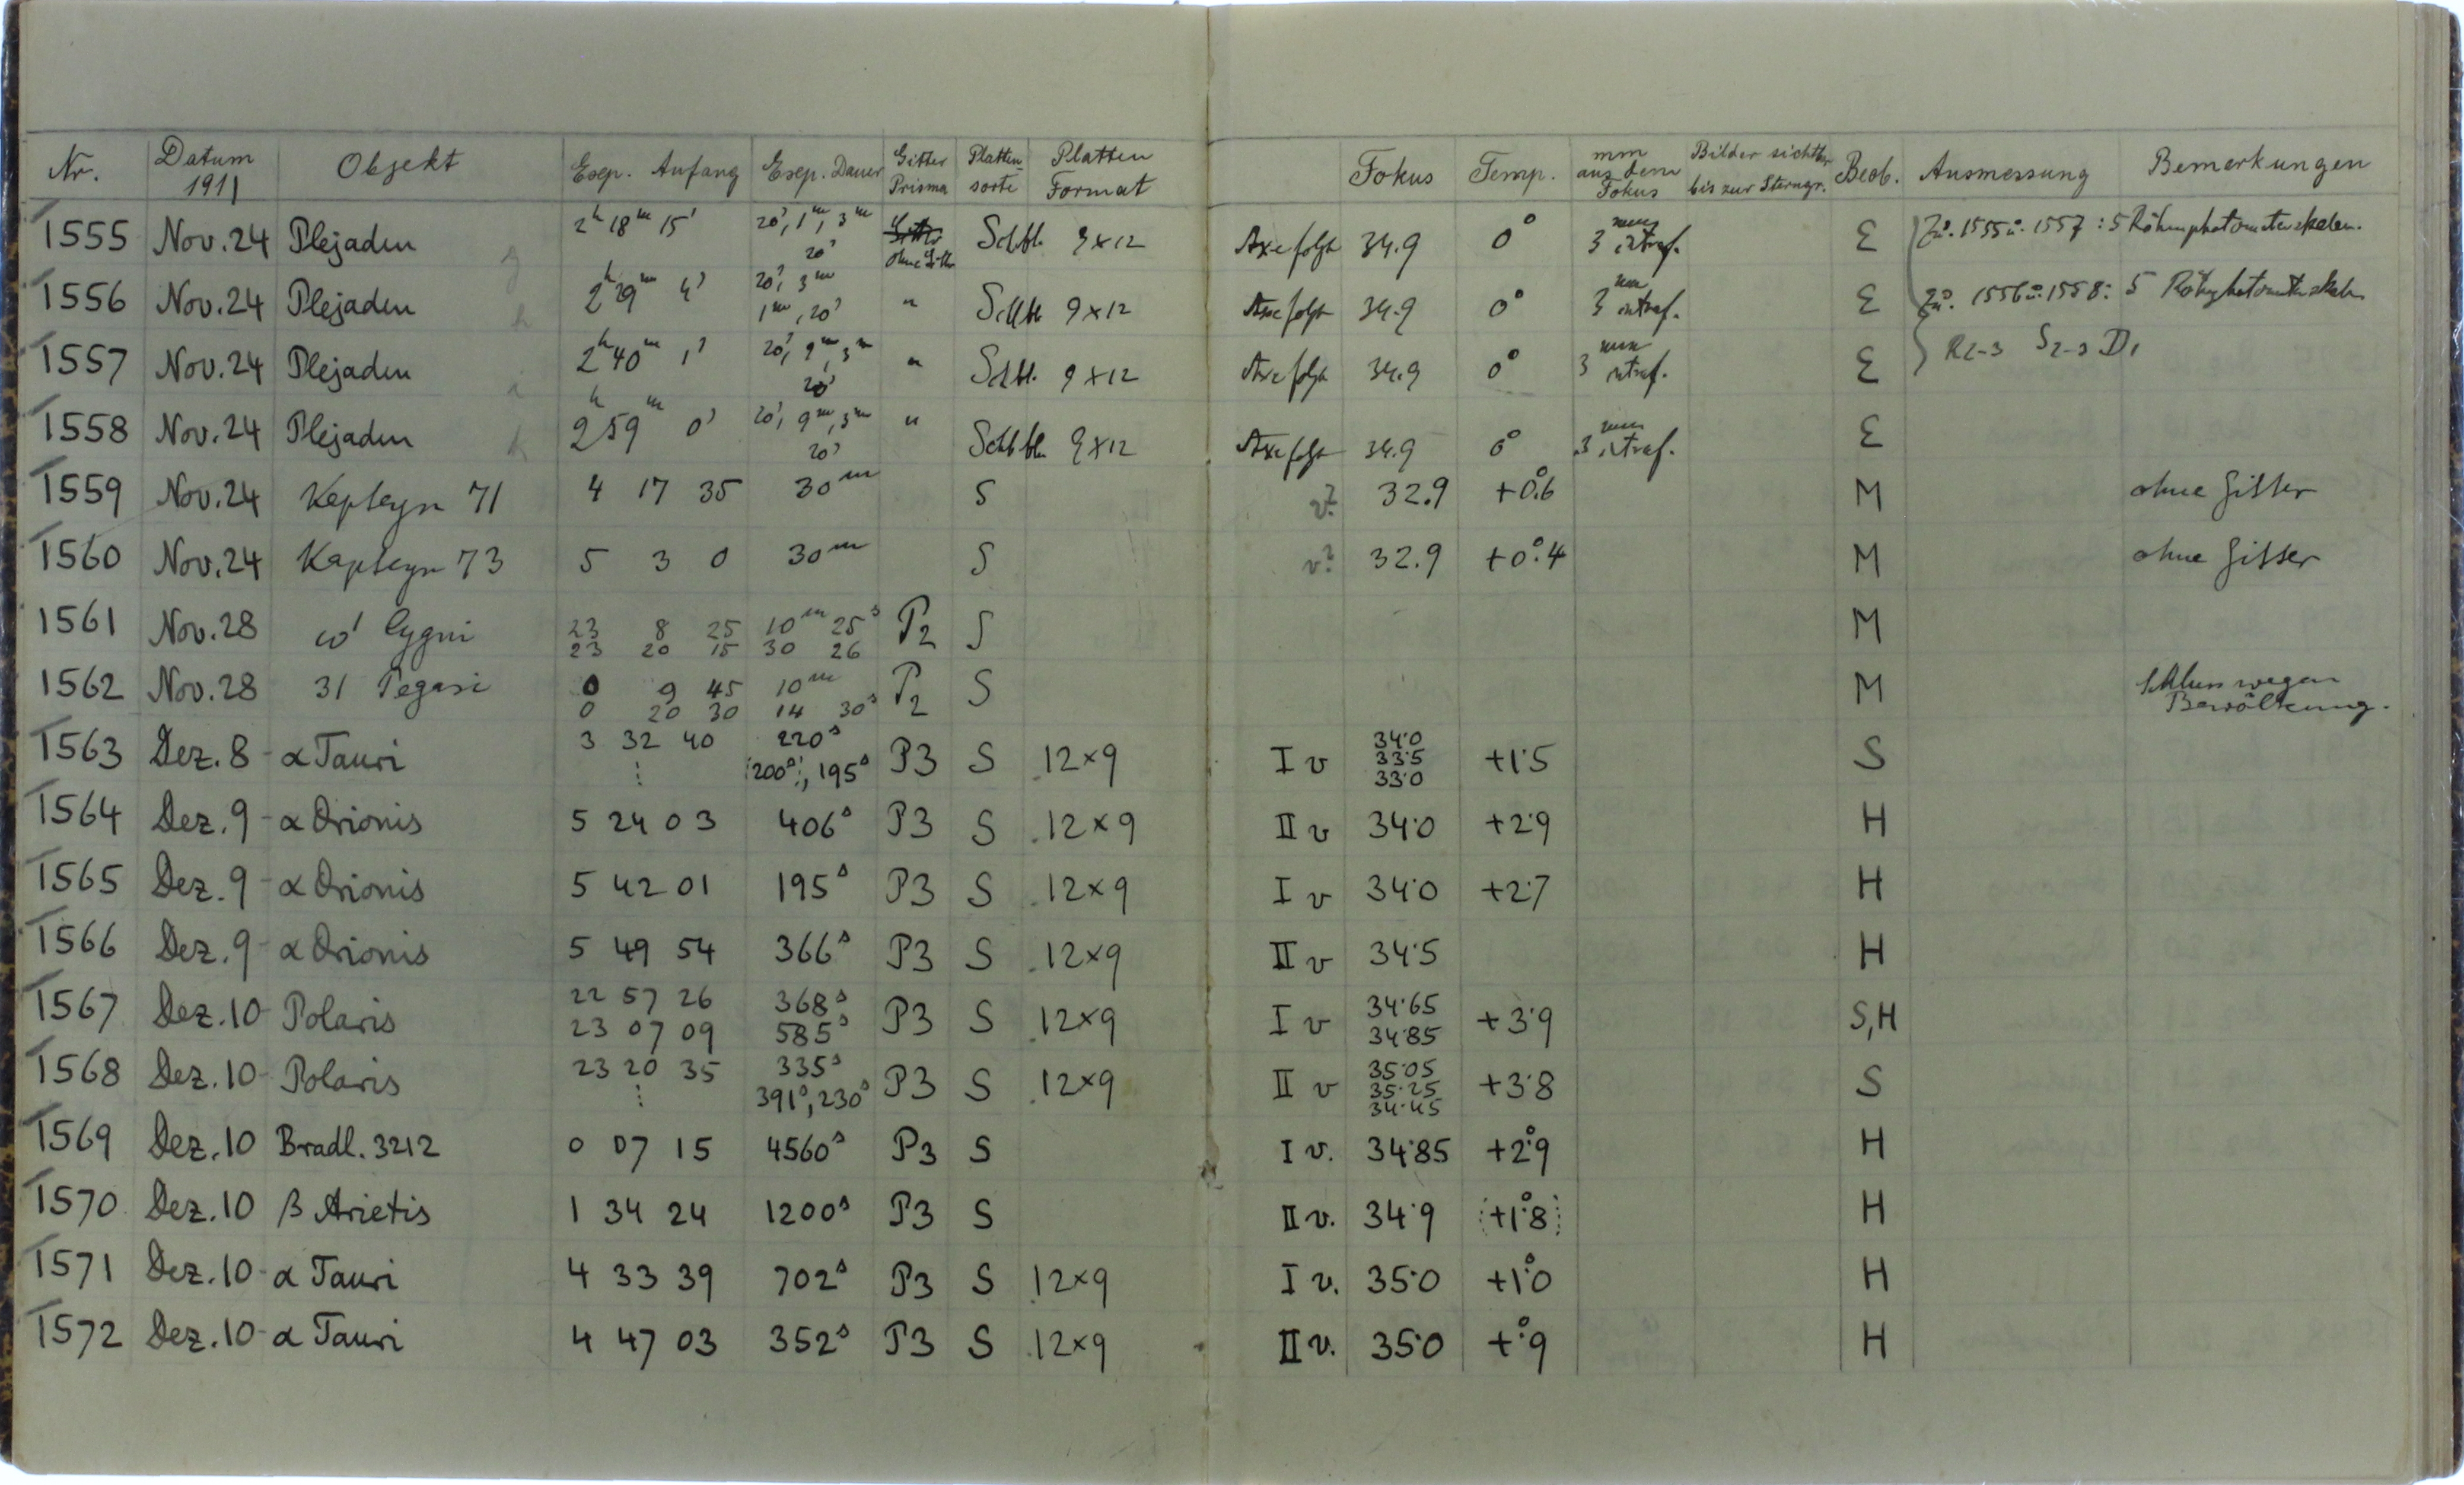 Nr. Datum 1911 Objekt Exp. Anfang Exp. Dauer Gitter Prisma Platten sorte Platten Format Fokus Temp. mm aus dem Fokus Bilder sichtbar bis zur Sterngr. Beob. Ausmessung Bemerkungen
1555 Nov. 24 Plejaden 2h 18m 15s 20s, 1m, 3m 20s ohne Gitter Schbl. 9x12 Axe folgt 34.9 0° 3 mm intraf. E Zu. 1555 u. 1557: 5 Röhrenphotometerskalen.
1556 Nov. 24 Plejaden 2h 29m 4s 20s, 3m 1m, 20s " Schbl. 9x12 Axe folgt 34.9 0° 3 mm intraf. E Zu. 1556 u. 1558: 5
1557 Nov. 24 Plejaden 2h 40m 1s 20s, 9m, 3m 20s " Schbl. 9x12 Axe folgt 34.9 0° 3 mm intraf. E R2-3 S2-3 D1
1558 Nov. 24 Plejaden 2h 59m 0s 20s, 9m, 3m 20s " Schbl. 9x12 Axe folgt 34.9 0° 3 mm intraf. E
1559 Nov. 24 Kapteyn 71 4 17 35 30m S v? 32.9 +0°.6 M ohne Gitter
1560 Nov. 24 Kapteyn 73 5 3 0 30m S v? 32.9 +0°.4 M ohne Gitter
1561 Nov. 28 ω1 Cygni 23 8 25 10m 25s P2 S M
23 20 15 30 26
1562 Nov. 28 31 Pegasi 0 9 45 10m P2 S M Schluss wegen
0 20 30 14 30s Bewölkung.
1563 Dez. 8 α Tauri 3 32 40 220s P3 S 12x9 I v 34.0 +1.5 S
⋮ 200s, 195s 33.5
33.0
1564 Dez. 9 α Orionis 5 24 03 406s P3 S 12x9 II v 34.0 +2.9 H
1565 Dez. 9 α Orionis 5 42 01 195s P3 S 12x9 I v 34.0 +2.7 H
1566 Dez. 9 α Orionis 5 49 54 366s P3 S 12x9 II v 34.5 H
1567 Dez. 10 Polaris 22 57 26 368s P3 S 12x9 I v 34.65 +3.9 S,H
23 07 09 585s 34.85
1568 Dez. 10 Polaris 23 20 35 335s P3 S 12x9 II v 35.05 +3.8 S
⋮ 391s, 230s 35.25
34.45
1569 Dez. 10 Bradl. 3212 0 07 15 4560s P3 S I v. 34.85 +2°.9 H
1570 Dez. 10 β Arietis 1 34 24 1200s P3 S II v. 34.9 +1°.8 H
1571 Dez. 10 α Tauri 4 33 39 702s P3 S 12x9 I v. 35.0 +1°.0 H
1572 Dez. 10 α Tauri 4 47 03 352s P3 S 12x9 II v. 35.0 +°.9 H